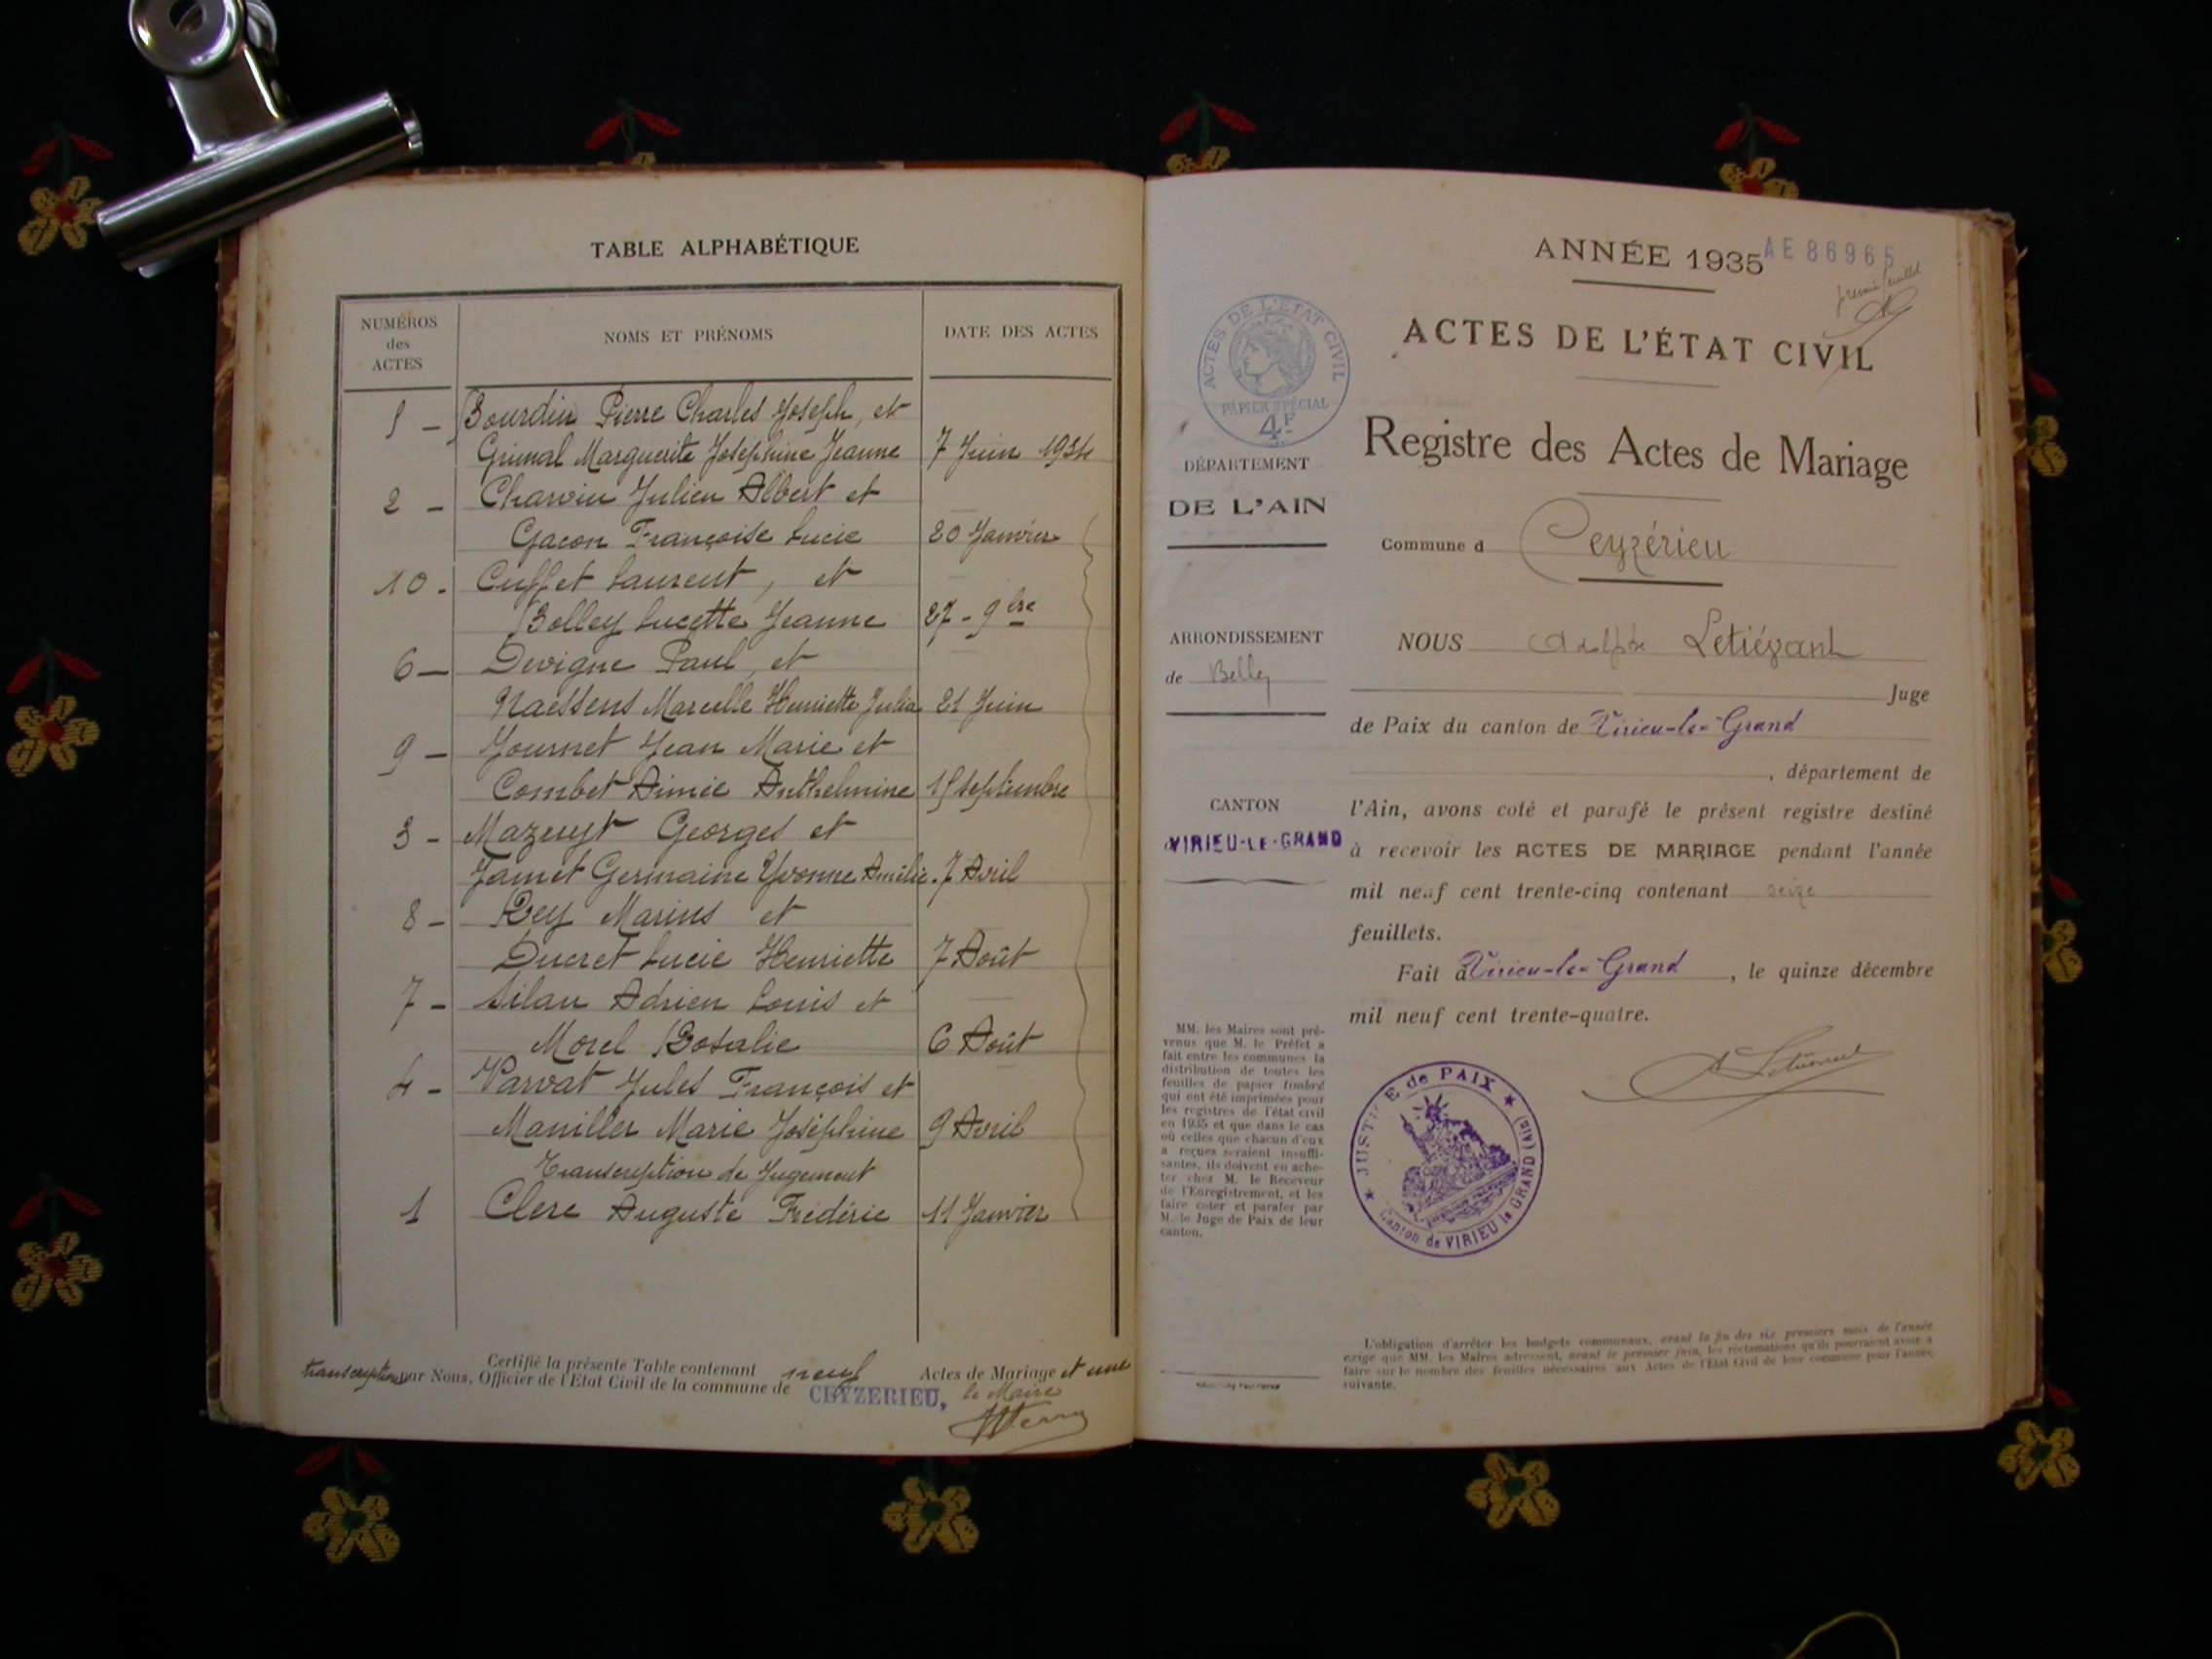 TABLE ALPHABÉTIQUE
NUMÉROS
des
ACTES
NOMS ET PRÉNOMS
DATE DES ACTES
5 - Bourdin Pierre Charles Joseph, et
Grimal Marguerite Joséphine Jeanne 7 Juin 1934
2 - Charvin Julien Albert et
Gacon Françoise Lucie 20 Janvier
10 - Cuffet Laurent, et
Bolley Lucette Jeanne 27 - 9bre
6 - Devigne Paul, et
Naessens Marcelle Henriette Julia 21 Juin
9 - Journet Jean Marie et
Combet Aimée Anthelmine 15 septembre
3 - Mazuyt Georges et
Jamet Germaine Yvonne Amélie. 7 Avril
8 - Rey Marius et
Ducret Lucie Henriette 7 Août
7 - Silan Adrien Louis et
Morel Rosalie 6 Août
4 - Varvat Jules François et
Maniller Marie Joséphine 9 Avril
Transcription de Jugement
1 Clerc Auguste Frédéric 11 Janvier
Certifié la présente Table contenant neuf Actes de Mariage et une
transcription par Nous, Officier de l'Etat Civil de la commune de CEYZERIEU,
le Maire
ANNÉE 1935
AE 86965
premier feuillet
ACTES DE L'ÉTAT CIVIL
Registre des Actes de Mariage
Commune d Ceyzérieu
ACTES DE L'ETAT CIVIL
PAPIER SPÉCIAL
4F
DÉPARTEMENT
DE L'AIN
ARRONDISSEMENT
de Belley
CANTON
VIRIEU-LE-GRAND
NOUS Adolphe Letiévant
Juge
de Paix du canton de Virieu-le-Grand
, département de
l'Ain, avons coté et parafé le présent registre destiné
à recevoir les ACTES DE MARIAGE pendant l'année
mil neuf cent trente-cinq contenant seize
feuillets.
Fait à Virieu-le-Grand, le quinze décembre
mil neuf cent trente-quatre.
A Letiévant
JUSTICE de PAIX
Canton de VIRIEU le GRAND (Ain)
MM. les Maires sont pré-
venus que M. le Préfet a
fait entre les communes la
distribution de toutes les
feuilles de papier timbré
qui ont été imprimées pour
les registres de l'état civil
en 1935 et que dans le cas
où celles que chacun d'eux
a reçues seraient insuffi-
santes, ils doivent en ache-
ter chez M. le Receveur
de l'Enregistrement, et les
faire coter et parafer par
M. le Juge de Paix de leur
canton.
L'obligation d'arrêter les budgets communaux, avant la fin des six premiers mois de l'année
exige que MM. les Maires adressent, avant le premier juin, les réclamations qu'ils pourraient avoir à
faire sur le nombre des feuilles nécessaires aux Actes de l'Etat Civil de leur commune pour l'année
suivante.